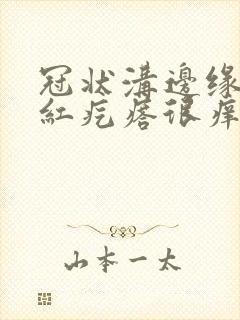 冠状溝邊缘
紅疙瘩很痒
山本一太